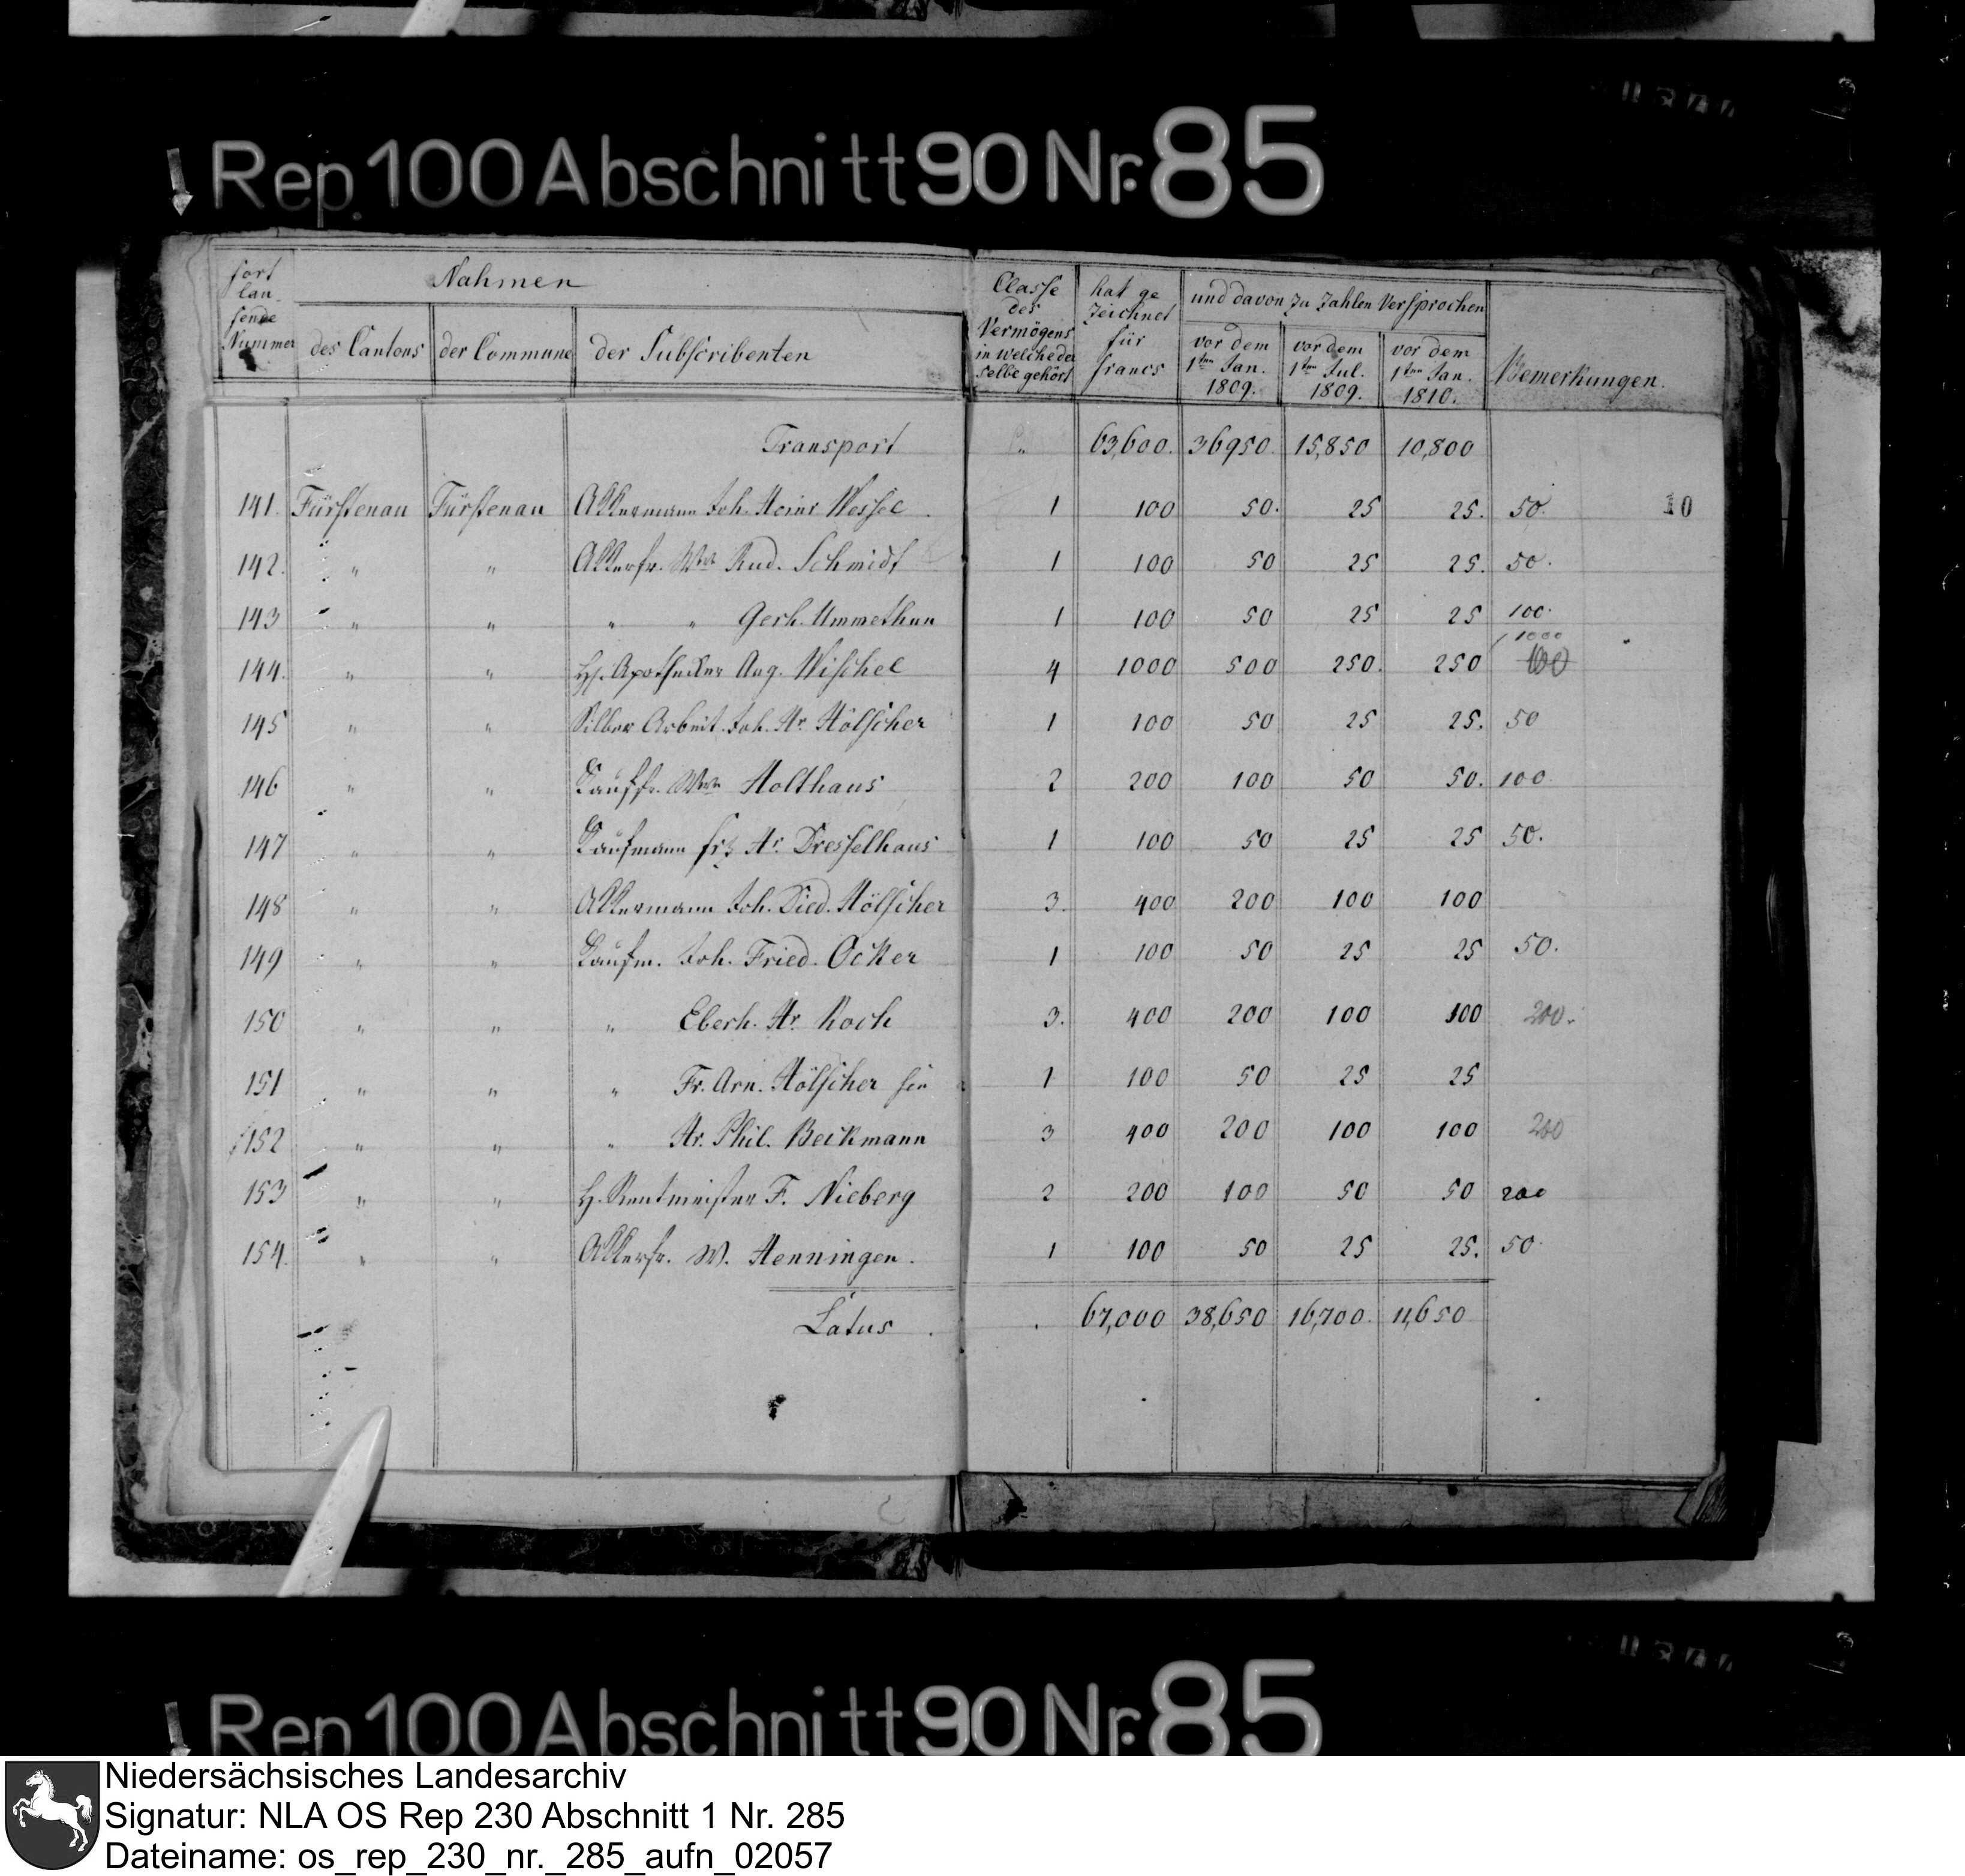 Rep. 100 Abschnitt 90 Nr. 85
fort lau fende Nummer | Nahmen | Classe des Vermögens in welche der selbe gehört | hat ge zeichnet für francs | und davon zu zahlen Versprochen | Bemerkungen.
des Cantons | der Commune | der Subscribenten | vor dem 1ten Jan. 1809. | vor dem 1ten Jul. 1809. | vor dem 1ten Jan. 1810.
Transport „ 63,600. 36950. 15,850 10,800
141. Fürstenau Fürstenau Akkermann Joh. Heinr. Wessel 1 100 50. 25 25. 50. 10
142. „ „ Akkerfr. Wwe Rud. Schmidt 1 100 50 25 25. 50.
143 „ „ „ „ Gerh. Ummethun 1 100 50 25 25 100.
144. „ „ H. Apotheker Aug. Wischel 4 1000 500 250. 250 1000
145 „ „ Silber Arbeit. Joh. Hr. Hölscher 1 100 50 25 25. 50
146 „ „ Kauffr. Wwe Holthaus 2 200 100 50 50. 100
147 „ „ Kaufmann frz Hr. Dresselhaus 1 100 50 25 25 50.
148 „ „ Akkermann Joh. Died. Hölscher 3. 400 200 100 100
149 „ „ Kaufm. Joh. Fried. Ocker 1 100 50 25 25 50.
150 „ „ „ Eberh. Hr. Koch 3. 400 200 100 100 200.
151 „ „ „ Fr. Arn. Hölscher sen 1 100 50 25 25
152 „ „ „ Hr. Phil. Beckmann 3 400 200 100 100 200
153 „ „ H. Rentmeister F. Nieberg 2 200 100 50 50 200
154. „ „ Akkerfr. W. Henningen. 1 100 50 25 25. 50.
Latus . 67,000 38,650 16,700. 11,650
Rep 100 Abschnitt 90 Nr. 85
Niedersächsisches Landesarchiv
Signatur: NLA OS Rep 230 Abschnitt 1 Nr. 285
Dateiname: os_rep_230_nr._285_aufn_02057